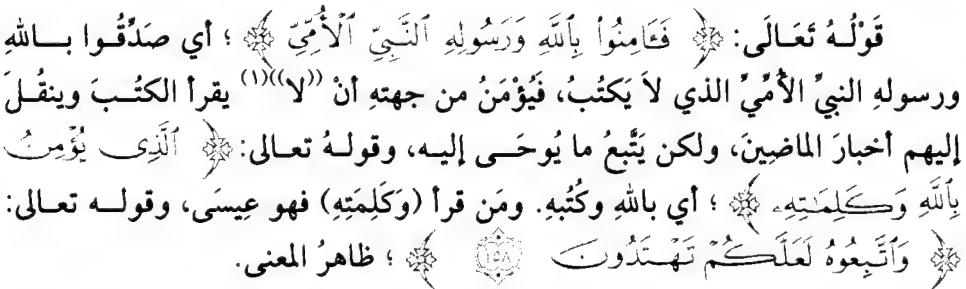 قَوْلُهُ تَعَالَى: ﴿ فَـَٔامِنُوا۟ بِٱللَّهِ وَرَسُولِهِ ٱلنَّبِىِّ ٱلْأُمِّىِّ ﴾ ؛ أي صَدِّقُوا بالله
ورسولهِ النبيِّ الأُمِّيِّ الذي لاَ يَكتُبُ، فَيُؤْمَنُ من جهتهِ أنْ ((لا))(١) يقرأ الكتُبَ وينقُلَ
إليهم أخبارَ الماضِينَ، ولكن يَتَّبعُ ما يُوحَى إليه، وقولهُ تعالى: ﴿ ٱلَّذِى يُؤْمِنُ
بِٱللَّهِ وَكَلِمَٰتِهِۦ ﴾ ؛ أي باللهِ وكتُبهِ. ومَن قرأ (وَكَلِمَتِهِ) فهو عِيسَى، وقوله تعالى:
﴿ وَٱتَّبِعُوهُ لَعَلَّكُمْ تَهْتَدُونَ ١٥٨ ﴾ ؛ ظاهرُ المعنى.